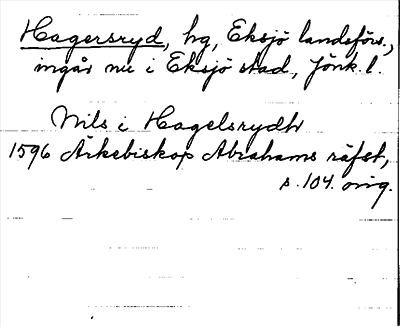 Hagersryd, hg, Eksjö landsförs.,
ingår nu i Eksjö stad, Jönk. l.
Nils i Hagelsrydh
1596 Ärkebiskop Abrahams räfst,
s. 104. orig.